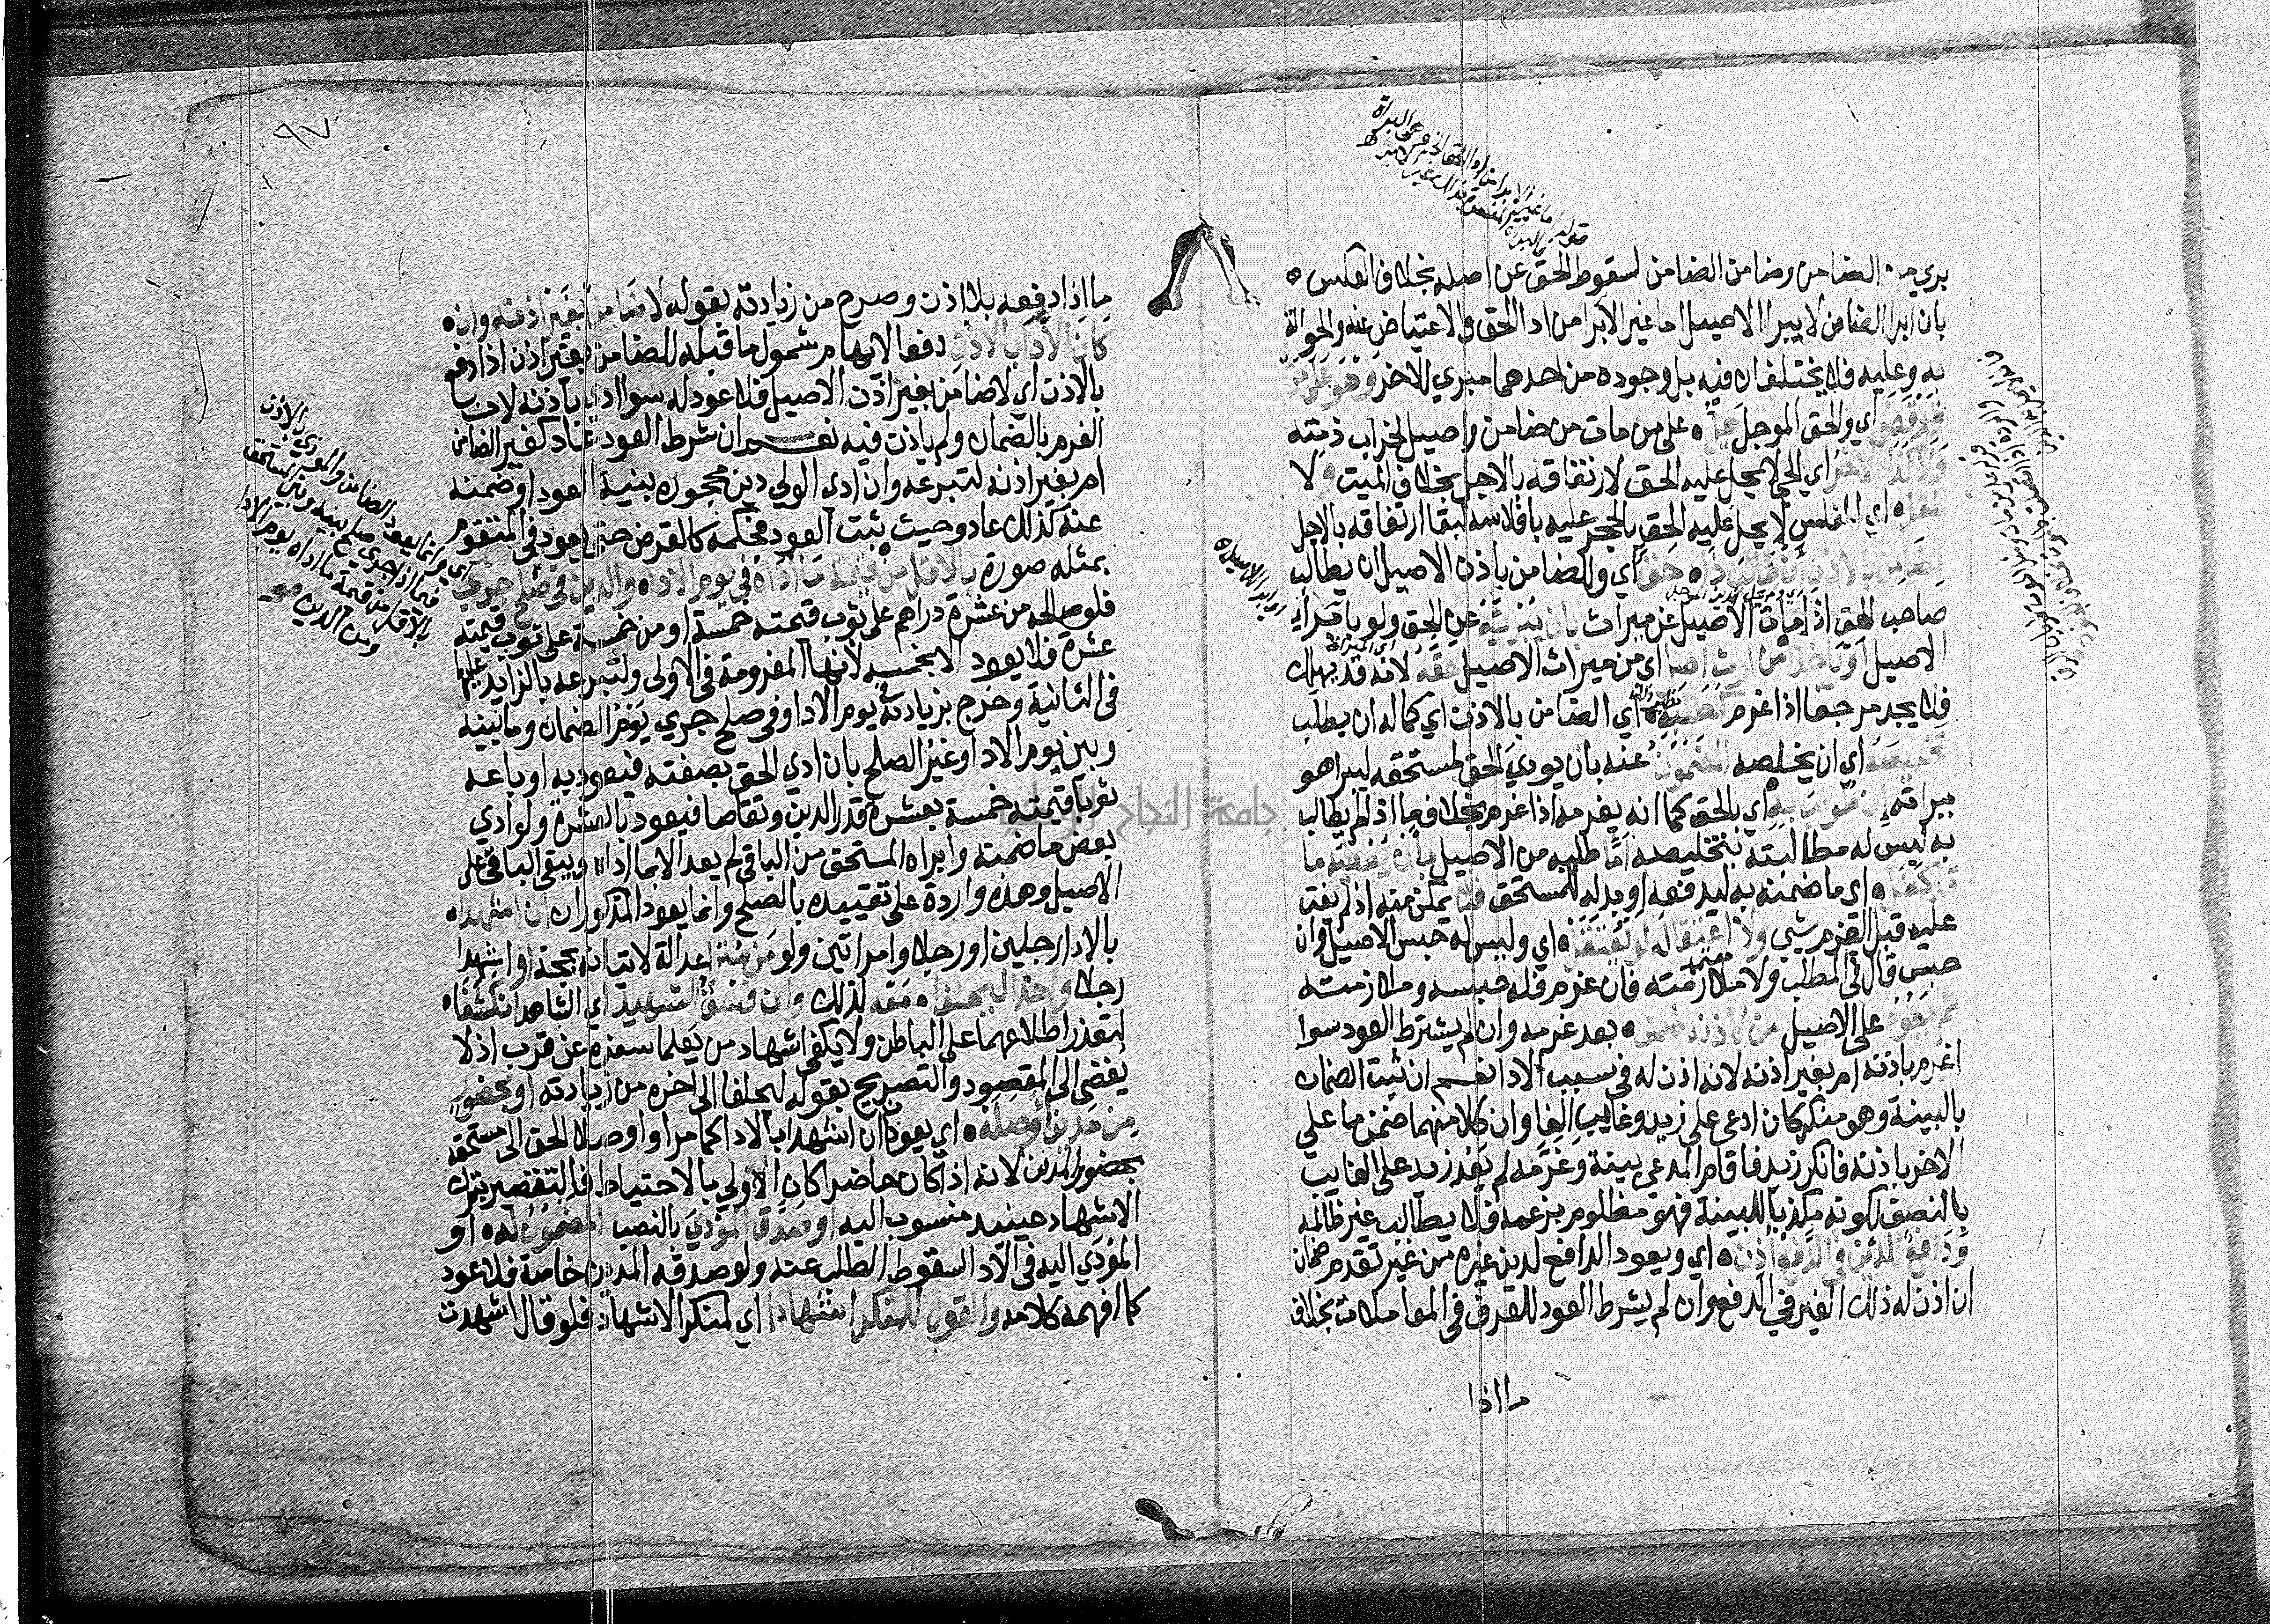 بري من الضامن وضامن الضامن لسقوط الحق عن اصله بخلاف العكس
بان ابرا الضامن لا يبرا الاصيل اما غير الابرا من ادا الحق والاعتياض عنه والحوالة
به وعليه فلا يختلفان فيه بل وجوده من احدهما مبري للاخر وهو
اي والحق الموجل على من مات من ضامن واصيل لخراب ذمته
ولا كذا الاخر اي الحي لا يحل عليه الحق لارتفاقه بالاجل بخلاف الميت ولا
اي المفلس لا يحل عليه الحق بالحجر عليه بافلاسه لبقا ارتفاقه بالاجل
لضامن بالاذن ان طالب ذاه حق اي وللضامن باذن الاصيل ان يطالب
صاحب الحق اذا مات الاصيل عن ميراث بان يبريه عن الحق ولو بابراء
الاصيل او ياخذ من ارث اي من ميراث الاصيل حقه لانه قد يهلك
فلا يجد مرجعا اذا غرم اي الضامن بالاذن اي كما له ان يطلب
اي ان يخلصه المضمون عنه بان يودي الحق لمستحقه ليبرا هو
ببراته ان طولب به اي بالحق كما انه يغرمه اذا غرم بخلاف ما اذا لم يطالب
به ليس له مطالبته بتخليصه اما طلبه من الاصيل بان يعطيه ما
تكفل اي ما ضمنه به ليدفعه او بدله للمستحق فلا يمكن منه اذ لم يفت
عليه قبل الغرم شي ولا اعتقاله لو يعتقل اي وليس له حبس الاصيل وان
حبس قال في المطلب ولا ملازمته فان غرم فله حبسه وملازمته
ثم يعود على الاصيل من باذنه ضمن بعد غرمه وان لم يشترط العود سوا
اغرم باذنه ام بغير اذنه لانه اذن له في سبب الادا نعم ان ثبت الضمان
بالبينة وهو منكر كان ادعى على زيد وغايب الفا وان كلا منهما ضمن ما على
الاخر باذنه فانكر زيد فاقام المدعي بينة وغرمه لم يعد زيد على الغايب
بالنصف لكونه مكذبا للبينة فهو مظلوم بزعمه فلا يطالب غير ظالمه
ودافع الدين في الدفع اذن اي ويعود الدافع لدين غيره من غير تقدم ضمان
ان اذن له ذلك الغير في الدفع وان لم يشرط العود للعرف في المعاملات بخلاف
ما اذا
٩٧
ما اذا دفعه بلا اذن وصرح من زيادته بقوله لا ضامن بغير اذنه وان
كان الادا بالاذن دفعا لايهام شمول ما قبله للضامن بغير اذن اذا دفع
بالاذن اي لا ضامن بغير اذن الاصيل فلا عود له سوا ادى باذنه لان
الغرم بالضمان ولم ياذن فيه نعم ان شرط العود عاد كغير الضامن
ام بغير اذنه لتبرعه وان ادى الولي دين محجوره بنية العود او ضمنه
عنه كذلك عاد وحيث ثبت العود فحكمه كالقرض حتى يعود في المتقوم
بمثله صورة بالاقل من قيمة ما اداه في يوم الاداه والدين في صلح جري
فلو صالحه من عشرة دراهم على ثوب قيمته خمسة او من خمسة على ثوب قيمته
عشرة فلا يعود الا بخمسه لانها المغرومة في الاولى ولتبرعه بالزايد عليها
في الثانية وخرج بزيادته يوم الادا وفي صلح جري يوم الضمان وما بينه
وبين يوم الادا وغير الصلح بان ادى الحق بصفته فيعود به او باعه
ثوبا قيمته خمسة بعشرة قدر الدين وتقاصا فيعود بالعشرة ولو ادى
بعض ما ضمنه وابراه المستحق من الباقي لم يعد الا بما اداه ويبقى الباقي على
الاصيل وهذه واردة على تقييده بالصلح وانما يعود المذكوران ان اشهدا
بالادا رجلين او رجلا وامراتين ولو من العدالة لاتيانه بحجة او اشهدا
رجلا واحدا ليحلفا معه لذلك وان فسق الشهيد اي الشاهد انكشفا
لتعذر اطلاعهما على الباطن ولا يكفي اشهاد من يعلما سفره عن قرب اذ لا
يفضي الى المقصود والتصريح بقوله ليحلفا الى اخره من زيادته او بحضور
من مدين اوصله اي يعودان ان اشهدا بالادا كما مر او اوصلا الحق الى مستحقه
بحضور المدين لانه اذا كان حاضرا كان الاولى بالاحتياط فالتقصير بترك
الاشهاد حينيذ منسوب اليه او صدق المؤدي بالنصب المضمون له او
المؤدي اليه في الادا لسقوط الطلب عنه ولو صدقه المدين خاصة فلا عود
كما افهمه كلامه والقول للمنكر اشهادا اي لمنكر الاشهاد فلو قال اشهدت
اي وانما يعود الضامن والمودي بالاذن
فيما اذا جرى صلح بينه وبين المستحق
بالاقل من قيمة ما اداه يوم الادا
ومن الدين